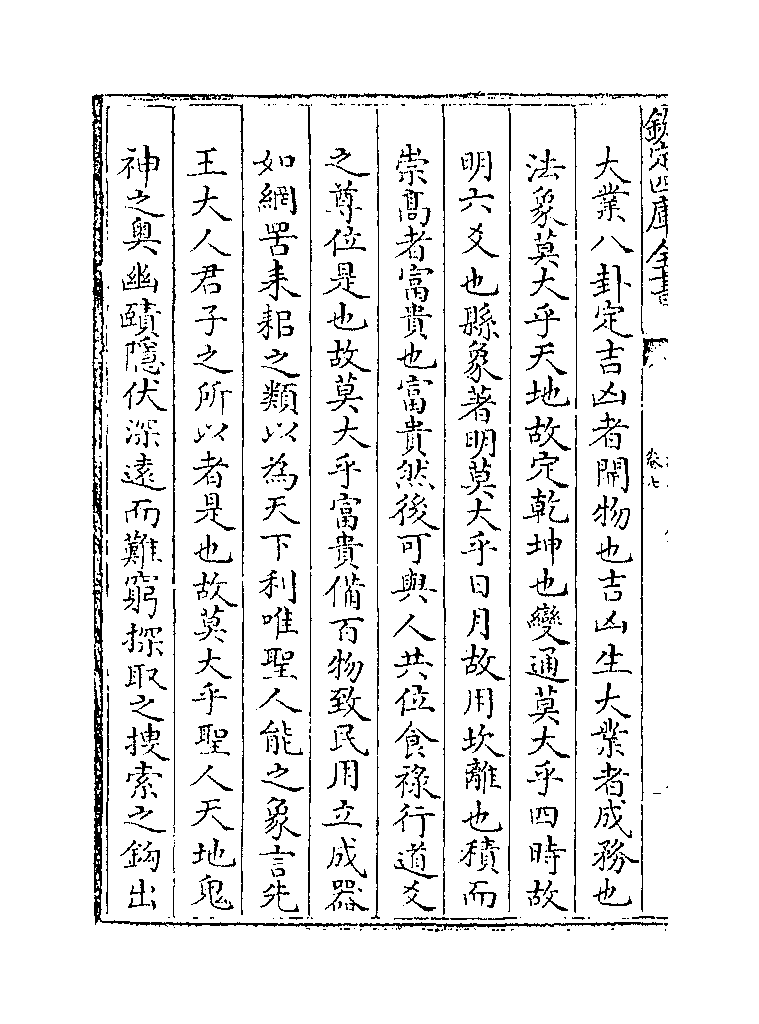 欽定四庫全書
卷七
大業八卦定吉凶者開物也吉凶生大業者成務也
法象莫大乎天地故定乾坤也變通莫大乎四時故
明六爻也縣象著明莫大乎日月故用坎離也積而
崇髙者富貴也富貴然後可與人共位食祿行道爻
之尊位是也故莫大乎富貴備百物致民用立成器
如網罟耒耜之類以為天下利唯聖人能之象言先
王大人君子之所以者是也故莫大乎聖人天地鬼
神之奥幽賾隱伏深遠而難窮探取之搜索之鈎出